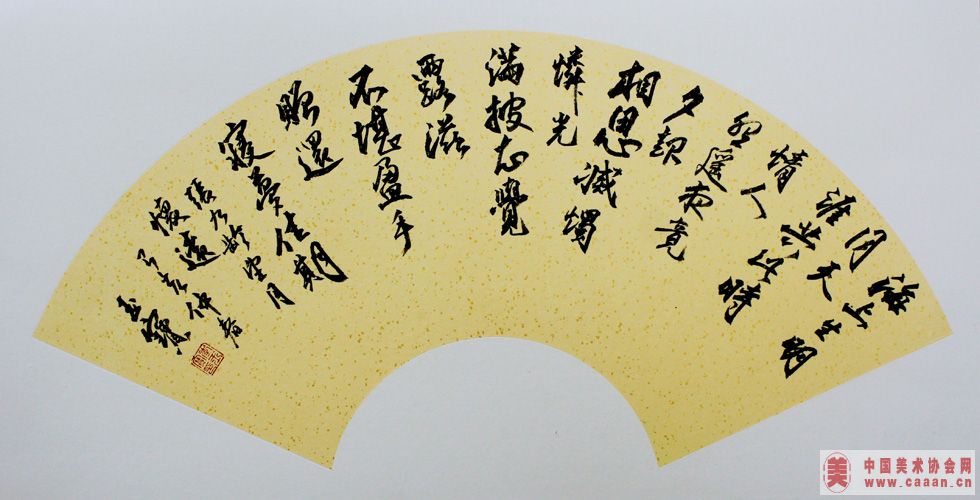 海上生明
月天
涯共此時
情人
怨遙夜竟
夕起
相思滅燭
憐光
滿披衣覺
露滋
不堪盈手
贈還
寢夢佳期
張九齡望月
懷遠丁亥仲春
玉寶
中国美术协会网
www.caaan.cn